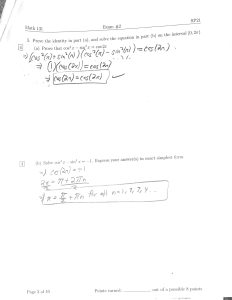 Math 131
Exam #2
SP21
5. Prove the identity in part (a), and solve the equation in part (b) on the interval [0, 2π].
(a) Prove that cos⁴ x − sin⁴ x = cos 2x
⇒ (cos²(x) + sin²(x)) (cos²(x) − sin²(x)) = cos(2x)
⇒ (1)(cos(2x)) = cos(2x)
⇒ cos(2x) = cos(2x) ✓
(b) Solve cos⁴ x − sin⁴ x = −1. Express your answer(s) in exact simplest form
⇒ cos(2x) = −1
2x = π + 2πn
⇒ x = π/2 + πn for all n = 1, 2, 3, 4 ...
Points earned: out of a possible 8 points